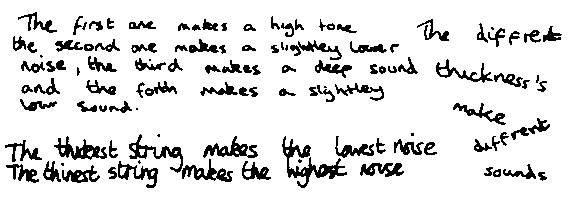 The first one makes a high tone
the second one makes a slightley lower
noise, the third makes a deep sound
and the forth makes a slightley
low sound.
The thickest string makes the lowest noise
The thinest string makes the highest noise
The diffrent
thickness's
make
diffrent
sounds